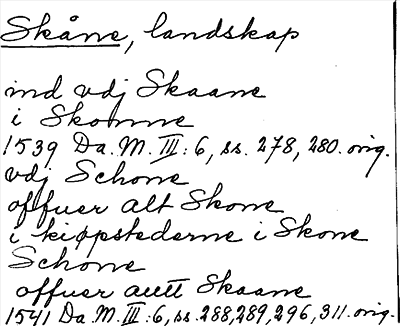 Skåne, landskap
ind vdj Skaane
i Skonne
1539 Da. M. III: 6, ss. 278, 280. orig.
vdj Schone
offuer alt Skone
i kiøpstederne i Skone
Schone
offuer autt Skaane
1541 Da. M. III: 6, ss. 288, 289, 296, 311. orig.